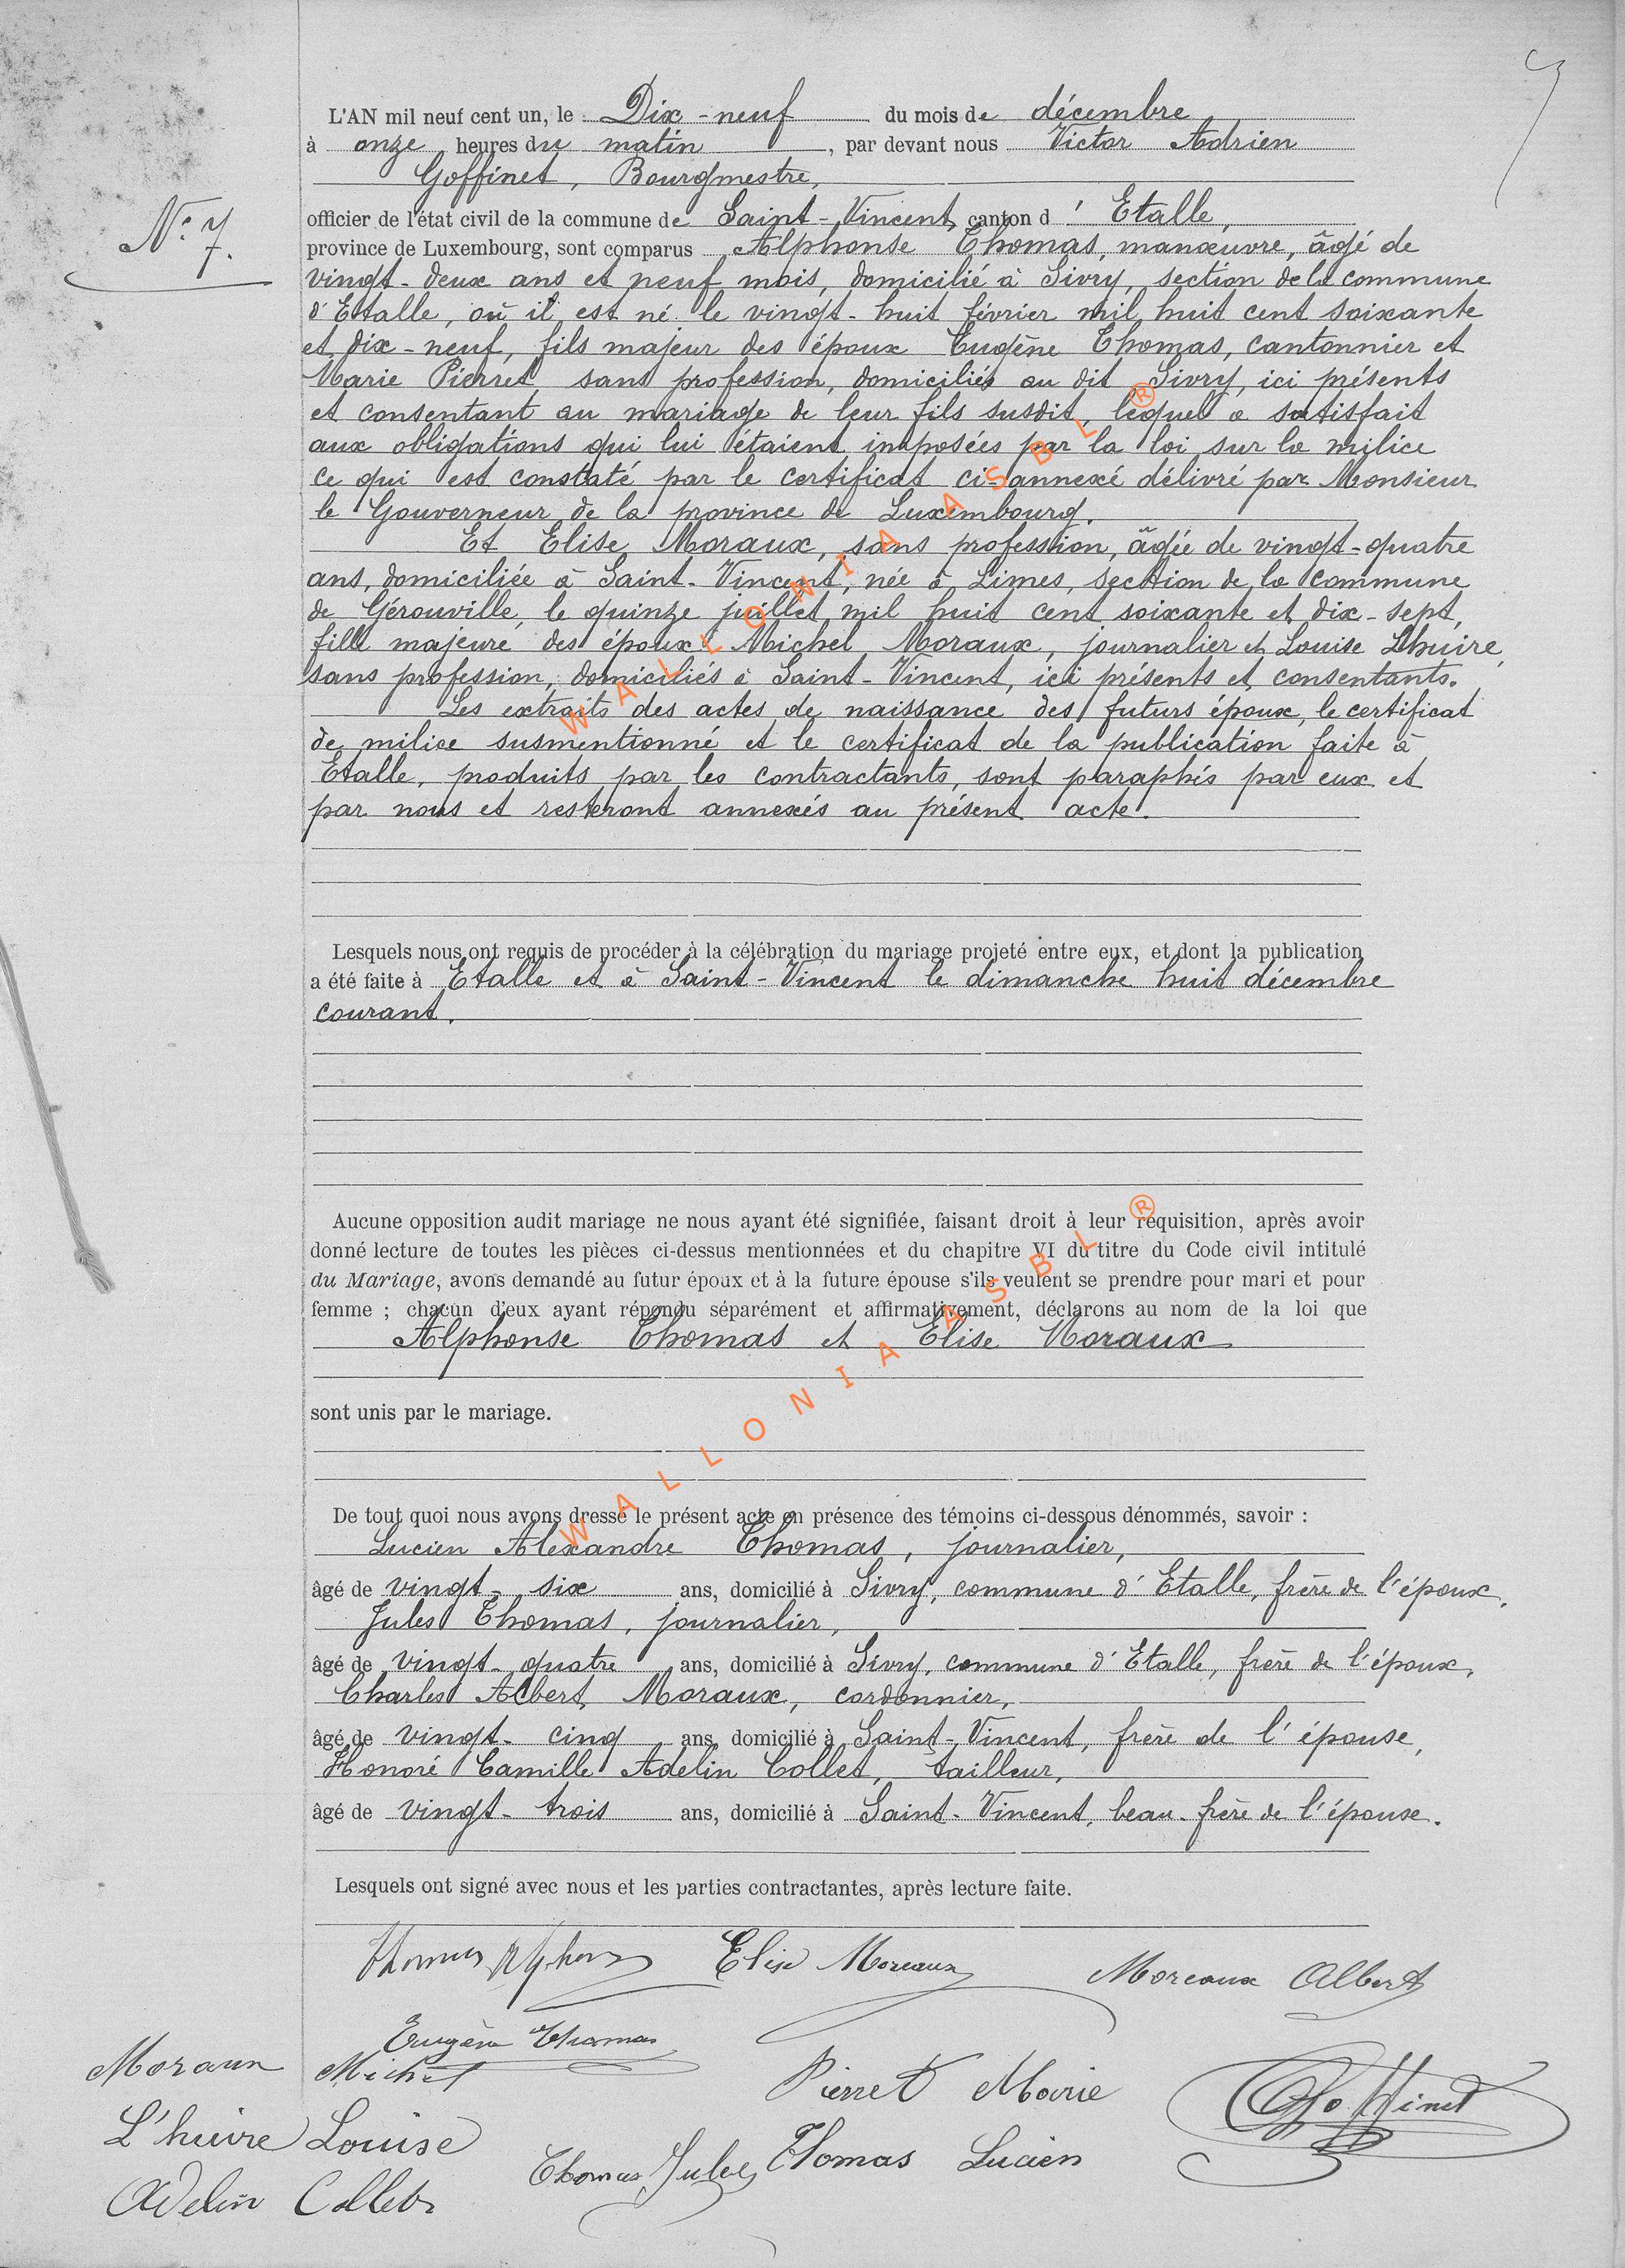 L'AN mil neuf cent un, le Dix-neuf du mois de décembre
à onze heures du matin, par devant nous Victor Adrien
Goffinet, Bourgmestre,
N° 7.
officier de l'état civil de la commune de Saint-Vincent, canton d'Etalle,
province de Luxembourg, sont comparus Alphonse Thomas, manœuvre, âgé de
vingt-deux ans et neuf mois, domicilié à Sivry, section de la commune
d'Etalle, où il est né le vingt-huit février mil huit cent soixante
et dix-neuf, fils majeur des époux Eugène Thomas, cantonnier et
Marie Pierret, sans profession, domiciliés au dit Sivry, ici présents
et consentant au mariage de leur fils susdit, lequel a satisfait
aux obligations qui lui étaient imposées par la loi sur la milice
ce qui est constaté par le certificat ci-annexé délivré par Monsieur
le Gouverneur de la province de Luxembourg.
Et Elise Moraux, sans profession, âgée de vingt-quatre
ans, domiciliée à Saint-Vincent, née à Limes, section de la commune
de Gérouville, le quinze juillet mil huit cent soixante et dix-sept,
fille majeure des époux Michel Moraux, journalier et Louise Lhuire,
sans profession, domiciliés à Saint-Vincent, ici présents et consentants.
Les extraits des actes de naissance des futurs époux, le certificat
de milice susmentionné et le certificat de la publication faite à
Etalle, produits par les contractants, sont paraphés par eux et
par nous et resteront annexés au présent acte.
WALLONIA ASBL ®
Lesquels nous ont requis de procéder à la célébration du mariage projeté entre eux, et dont la publication
a été faite à Etalle et à Saint-Vincent le dimanche huit décembre
courant.
Aucune opposition audit mariage ne nous ayant été signifiée, faisant droit à leur réquisition, après avoir
donné lecture de toutes les pièces ci-dessus mentionnées et du chapitre VI du titre du Code civil intitulé
du Mariage, avons demandé au futur époux et à la future épouse s'ils veulent se prendre pour mari et pour
femme ; chacun d'eux ayant répondu séparément et affirmativement, déclarons au nom de la loi que
Alphonse Thomas et Elise Moraux
sont unis par le mariage.
WALLONIA ASBL ®
De tout quoi nous avons dressé le présent acte en présence des témoins ci-dessous dénommés, savoir :
Lucien Alexandre Thomas, journalier,
âgé de vingt-six ans, domicilié à Sivry, commune d'Etalle, frère de l'époux,
Jules Thomas, journalier,
âgé de vingt-quatre ans, domicilié à Sivry, commune d'Etalle, frère de l'époux,
Charles Albert Moraux, cordonnier,
âgé de vingt-cinq ans, domicilié à Saint-Vincent, frère de l'épouse,
Honoré Camille Adelin Collet, tailleur,
âgé de vingt-trois ans, domicilié à Saint-Vincent, beau-frère de l'épouse.
Lesquels ont signé avec nous et les parties contractantes, après lecture faite.
Thomas Alphons Elise Moreaux Moreaux Albert
Eugène Thomas
Moraux Michel Pierret Marie Goffinet
L'huire Louise Thomas Jules Thomas Lucien
Adelin Collet